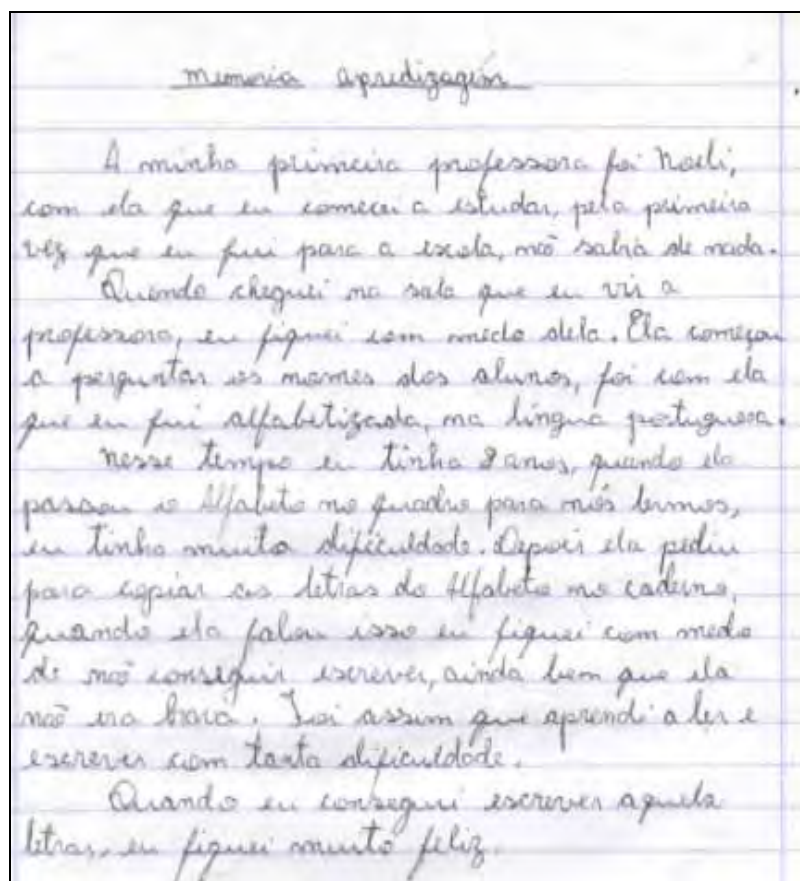 memoria apredizagém
A minha primeira professora foi Noeli,
com ela que eu comecei a estudar, pela primeira
vez que eu fui para a escola, não sabia de nada.
Quando cheguei na sala que eu vi a
professora, eu fiquei com medo dela. Ela começou
a perguntar os nomes dos alunos, foi com ela
que eu fui alfabetizada, na língua portuguesa.
nesse tempo eu tinha 8 anos, quando ela
passou o Alfabeto no quadro para nós lermos,
eu tinha muita dificuldade. Depois ela pediu
para copiar as letras do Alfabeto no caderno,
quando ela falou isso eu fiquei com medo
de não conseguir escrever, ainda bem que ela
não era brava. Foi assim que aprendi a ler e
escrever com tanta dificuldade.
Quando eu consegui escrever aquela
letras, eu fiquei muito feliz.